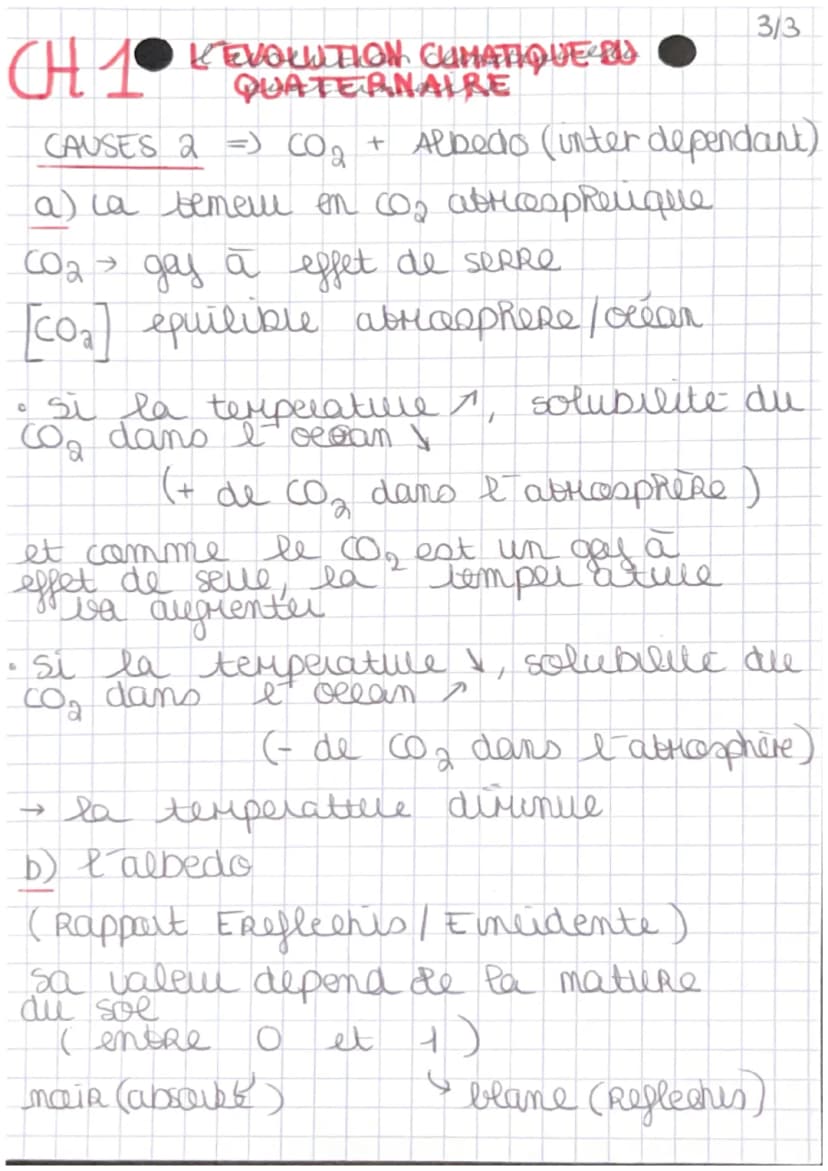 3/3
CH 1 L'EVOLUTION CLIMATIQUE DU
QUATERNAIRE
CAUSES 2 => CO₂ + Albedo (inter dependant)
a) la teneur en CO₂ atmospherique
CO₂ → gaz à effet de serre
[CO₂] equilibre atmosphere/océan
• si la temperature ↗, solubilité du
CO₂ dans l'ocean ↘
(+ de CO₂ dans l'atmosphère)
et comme le CO₂ est un gaz à
effet de serre, la temperature
va augmenter
• si la temperature ↘, solubilité du
CO₂ dans l'ocean ↗
(- de CO₂ dans l'atmosphère)
→ la temperature diminue
b) l'albedo
(Rapport Ereflechis / Eincidente)
sa valeur depend de la nature
du sol
(entre 0 et 1)
noir (absorbé) ↳ blanc (Reflechis)